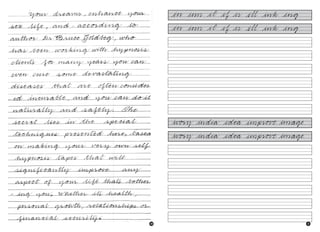 Your dreams, enhance your
sex life, and - according to
author Dr. Bruce Goldberg, who
has been working with hypnosis
clients for many years you can
even cure some devastating
diseases that are often consider
ed incurable, and you can do it
naturally and safely. The
secret lies in the special
techniques presented here, based
on making your very own self
hypnosis tapes that will
significantly improve any
aspect of your life thats bother
- ing you, whether its health,
personal growth, relationships or
financial security.
in inn il if is ill ink ing
in inn il if is ill ink ing
irony india idea import image
irony india idea import image